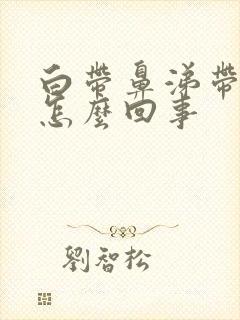 白帶鼻涕帶
怎麼回事
劉智松